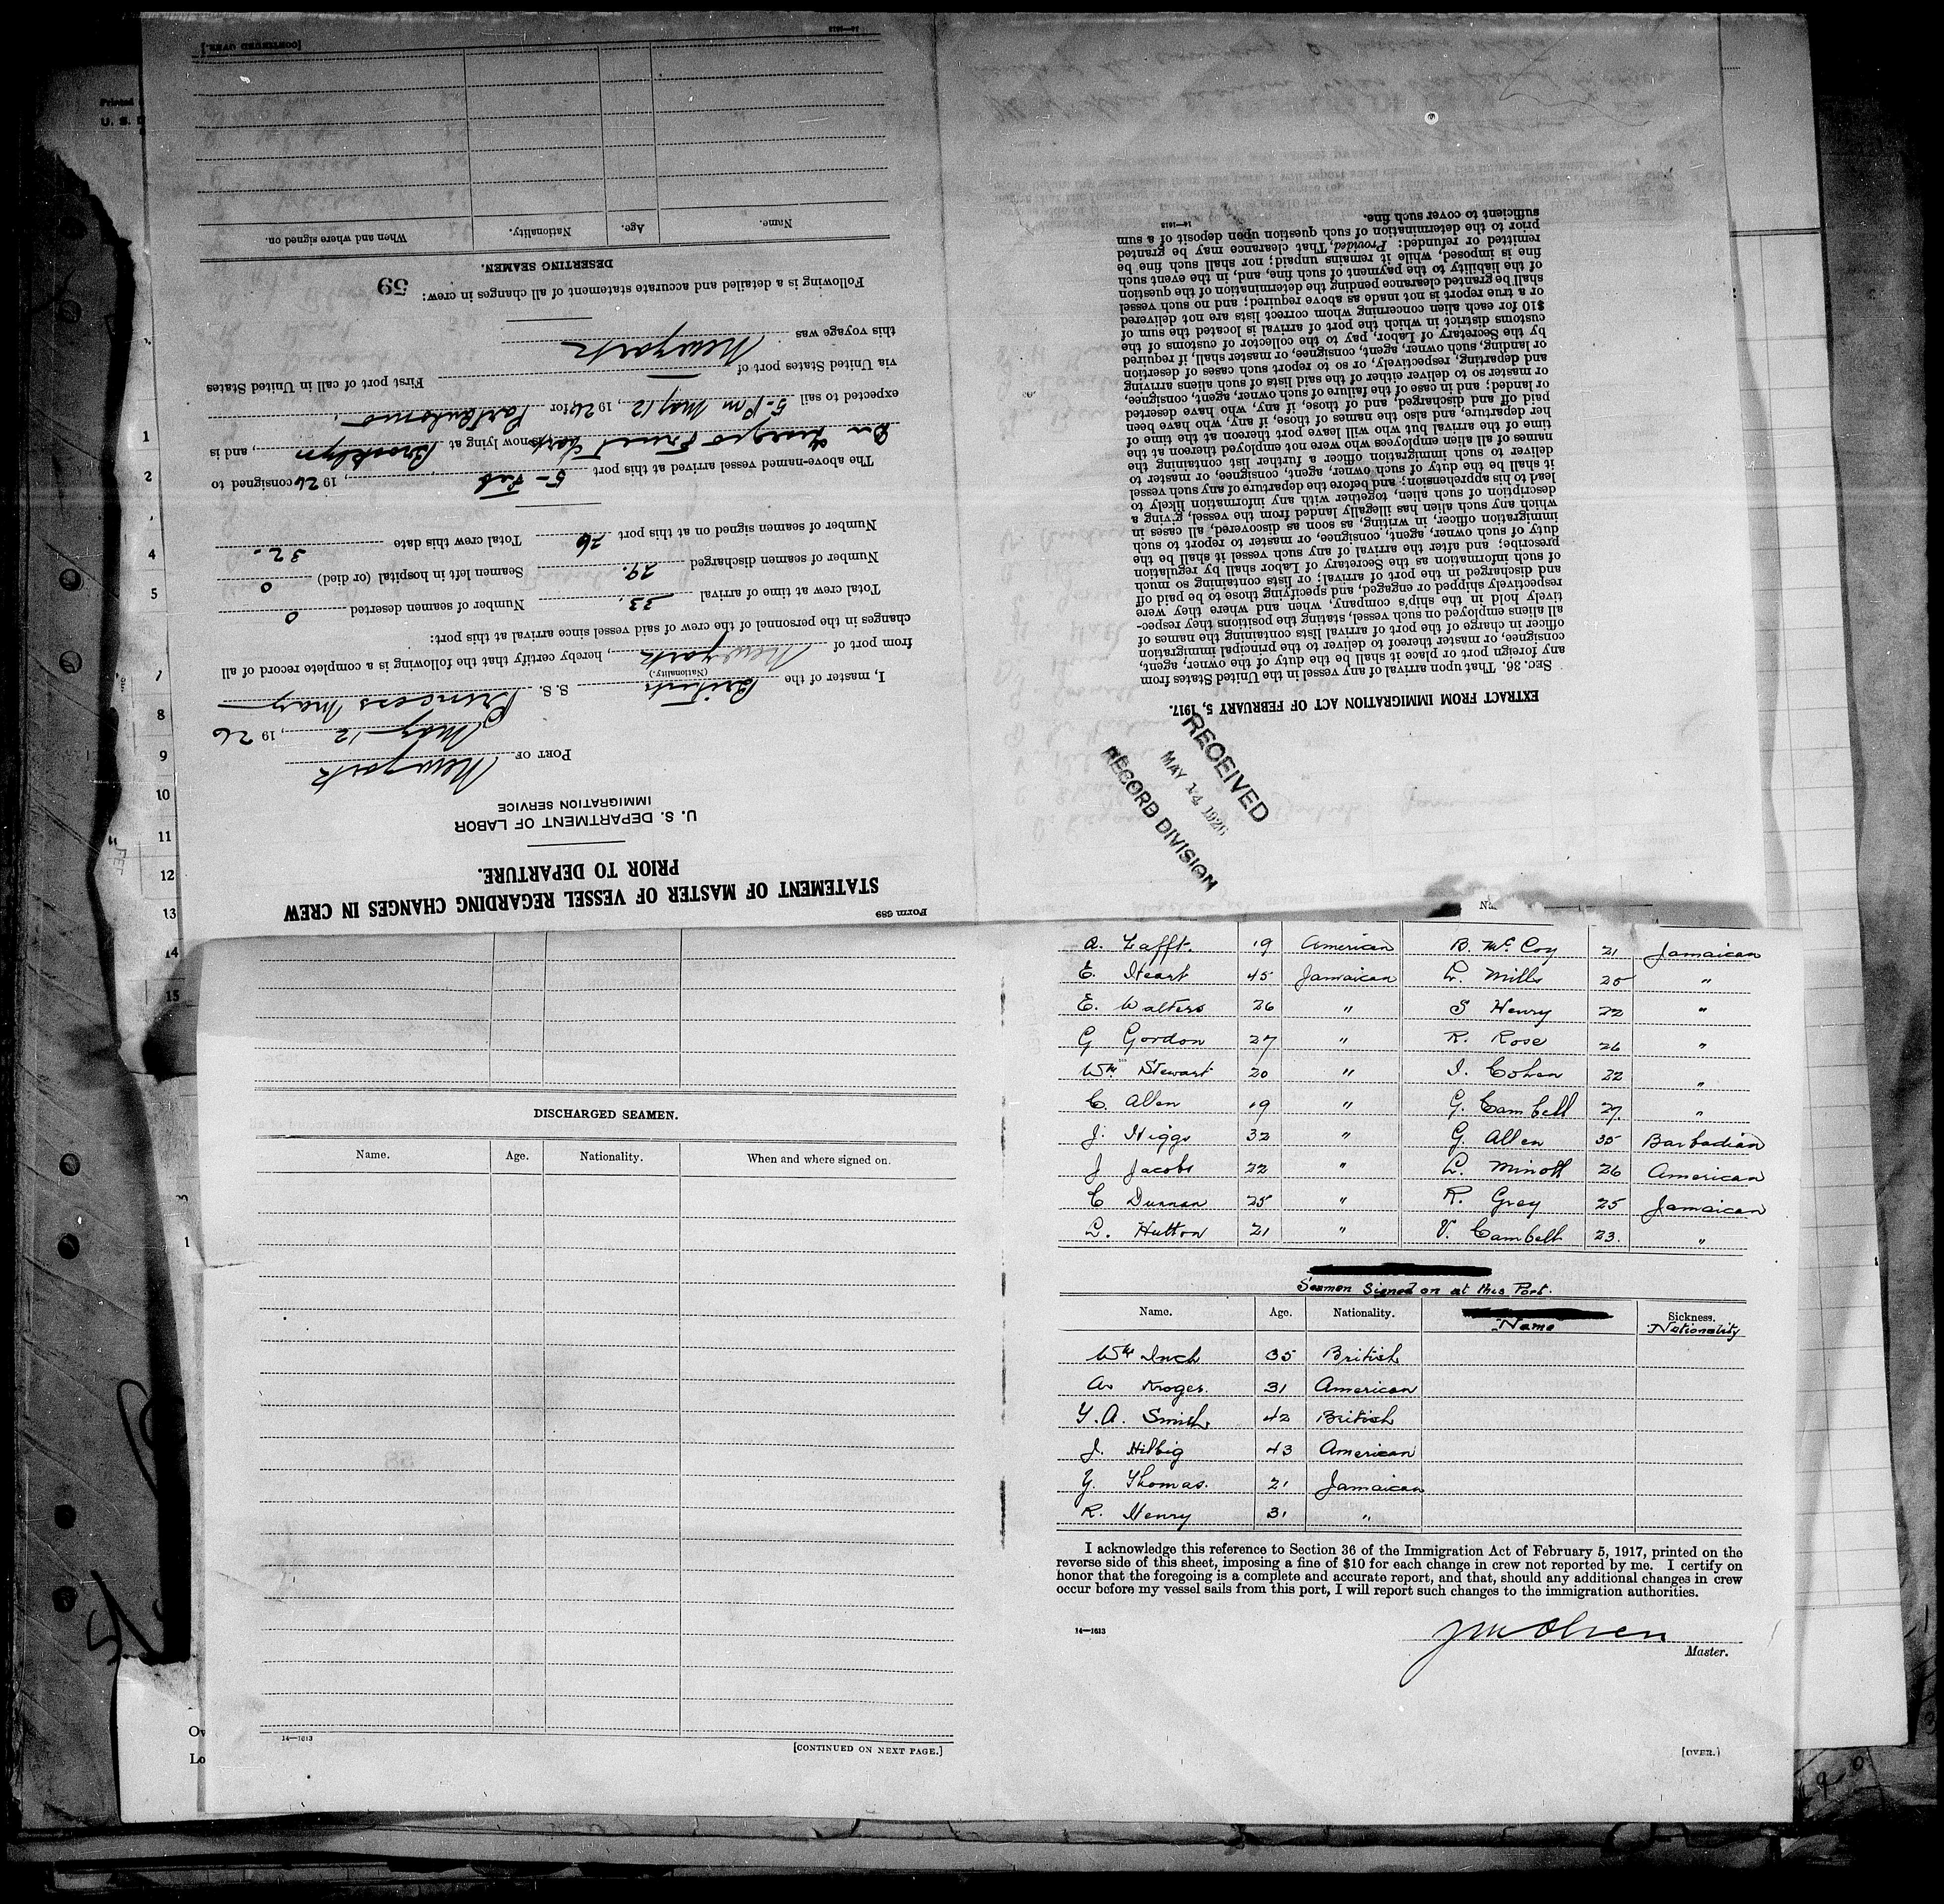 Form 689
STATEMENT OF MASTER OF VESSEL REGARDING CHANGES IN CREW
PRIOR TO DEPARTURE.
U. S. DEPARTMENT OF LABOR
IMMIGRATION SERVICE
PORT OF Newyork
May 12, 1926
I, master of the British S. S. Princess May
(Nationality.)
from port of Newyork, hereby certify that the following is a complete record of all
changes in the personnel of the crew of said vessel since arrival at this port:
Total crew at time of arrival 33. Number of seamen deserted 0
Number of seamen discharged 29. Seamen left in hospital (or died) 0
Number of seamen signed on at this port 26 Total crew this date 32.
The above-named vessel arrived at this port 5 - Feb, 1926 consigned to
now lying at Brooklyn, and is
expected to sail 5- Pm May 12, 1926 for Portantonio.
via United States port of — First port of call in United States
this voyage was Newyork
Following is a detailed and accurate statement of all changes in crew: 59
DESERTING SEAMEN.
Name. Age. Nationality. When and where signed on.
14—1613 [CONTINUED OVER.]
EXTRACT FROM IMMIGRATION ACT OF FEBRUARY 5, 1917.
SEC. 36. That upon arrival of any vessel in the United States from
any foreign port or place it shall be the duty of the owner, agent,
consignee, or master thereof to deliver to the principal immigration
officer in charge of the port of arrival lists containing the names of
all aliens employed on such vessel, stating the positions they respec-
tively hold in the ship's company, when and where they were
respectively shipped or engaged, and specifying those to be paid off
and discharged in the port of arrival; or lists containing so much
of such information as the Secretary of Labor shall by regulation
prescribe; and after the arrival of any such vessel it shall be the
duty of such owner, agent, consignee, or master to report to such
immigration officer, in writing, as soon as discovered, all cases in
which any such alien has illegally landed from the vessel, giving a
description of such alien, together with any information likely to
lead to his apprehension; and before the departure of any such vessel
it shall be the duty of such owner, agent, consignee, or master to
deliver to such immigration officer a further list containing the
names of all alien employees who were not employed thereon at the
time of the arrival but who will leave port thereon at the time of
her departure, and also the names of those, if any, who have been
paid off and discharged, and of those, if any, who have deserted
or landed; and in case of the failure of such owner, agent, consignee,
or master so to deliver either of the said lists of such aliens arriving
and departing, respectively, or so to report such cases of desertion
or landing, such owner, agent, consignee, or master shall, if required
by the Secretary of Labor, pay to the collector of customs of the
customs district in which the port of arrival is located the sum of
$10 for each alien concerning whom correct lists are not delivered
or a true report is not made as above required; and no such vessel
shall be granted clearance pending the determination of the question
of the liability to the payment of such fine, and, in the event such
fine is imposed, while it remains unpaid; nor shall such fine be
remitted or refunded: Provided, That clearance may be granted
prior to the determination of such question upon deposit of a sum
sufficient to cover such fine.
14—1613
RECEIVED
MAY 14 1926
RECORD DIVISION
DISCHARGED SEAMEN.
Name. Age. Nationality. When and where signed on.
14—1613
[CONTINUED ON NEXT PAGE.]
A. Tafft. 19 American B. McCoy 21 Jamaican
E. Heart 45 Jamaican L. Mills 25 "
E. Walters 26 " S Henry 22 "
G Gordon 27 " R. Rose 26 "
Wm Stewart 20 " I. Cohen 22 "
C. Allen 19 " G. Cambell 27. "
J. Higgs 32 " G. Allen 35 Barbadian
J Jacobs 22 " L. Minott 26 American
C Dunnan 25 " R. Gray 25 Jamaican
L. Hutton 21 " V. Cambell 23. "
Seamen Signed on at this Port.
Name. Age. Nationality. Name Sickness. Nationality
Wm Inch 35 British
A. Kroges. 31 American
Y. A. Smith 42 British
J. Hilbig 43 American
Y. Thomas. 21 Jamaican
R. Henry 31 "
I acknowledge this reference to Section 36 of the Immigration Act of February 5, 1917, printed on the
reverse side of this sheet, imposing a fine of $10 for each change in crew not reported by me. I certify on
honor that the foregoing is a complete and accurate report, and that, should any additional changes in crew
occur before my vessel sails from this port, I will report such changes to the immigration authorities.
14—1613
J M Olsen
Master.
[OVER.]
1
2
4
5
7
8
9
10
11
12
13
14
15